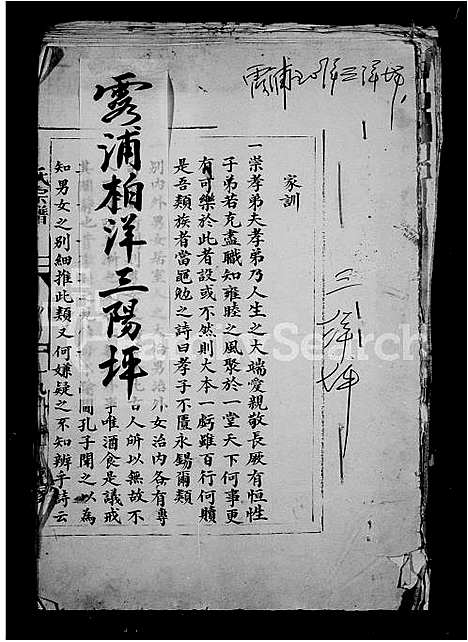 霞浦柏洋三陽坪
三洋坪
家訓
一崇孝弟夫孝弟乃人生之大端愛親敬長厥有恒性
子弟若充盡職知雍睦之風聚於一堂天下何事更
有可樂於此者設或不然則大本一虧雖百行何贖
是吾類族者當黽勉之詩曰孝子不匱永錫爾類
別內外男女居室人之大 男治外女治內各有專
言人所以無故不
事唯酒食是議戒
間孔子聞之以為
知男女之別細推此類又何嫌疑之不知辨乎詩云
氏宗譜